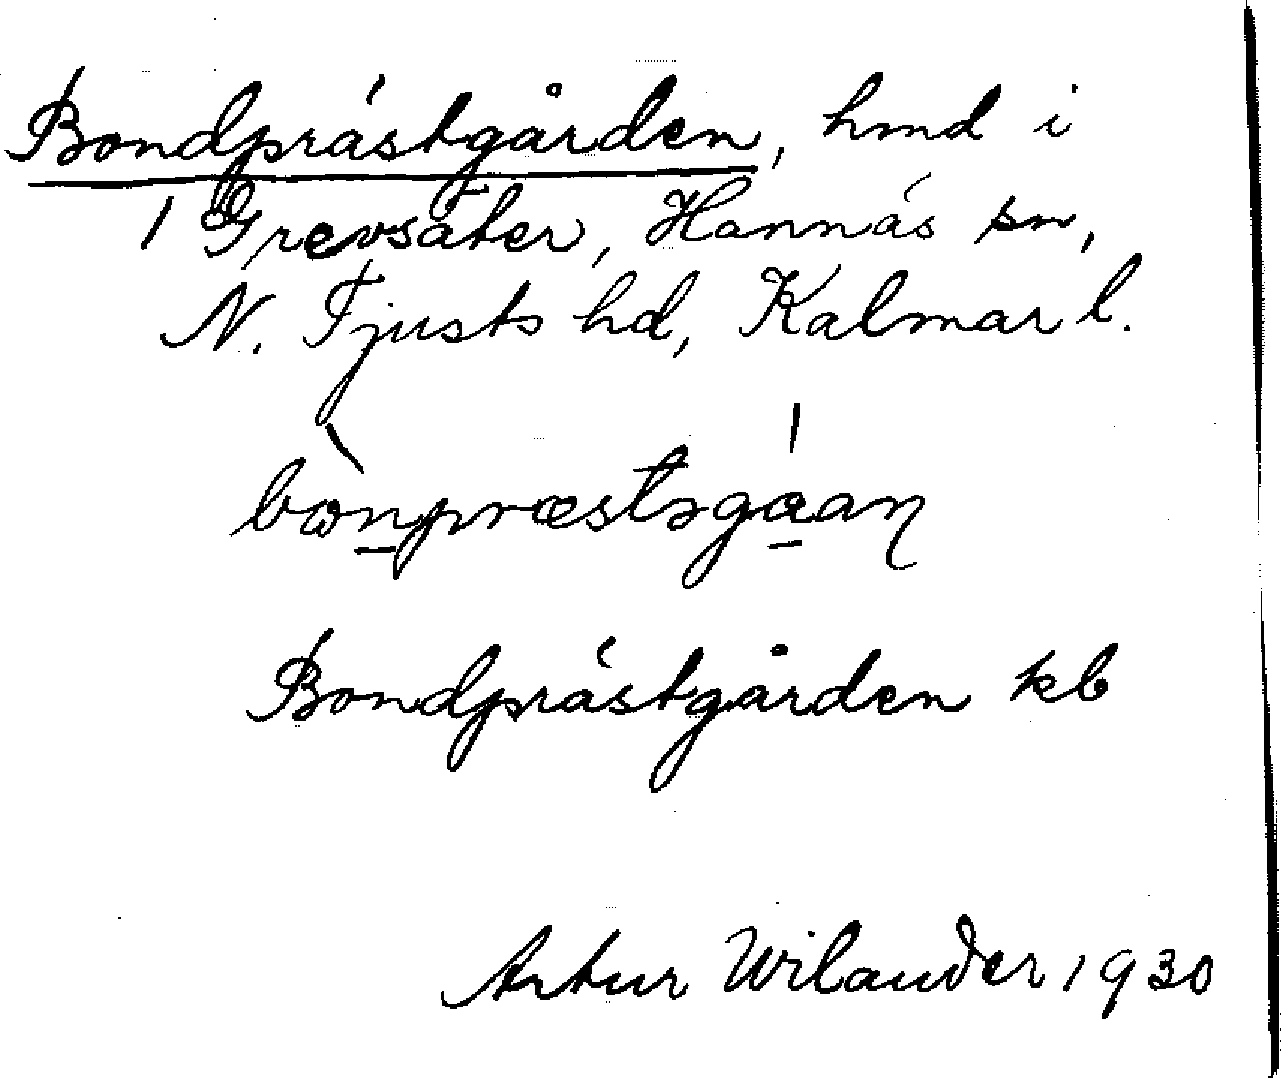 Bondprästgården, hmd i
1 Grevsäter, Hannäs sn,
N. Tjusts hd, Kalmar l.
Bondprästgården kb
Artur Wilander 1930